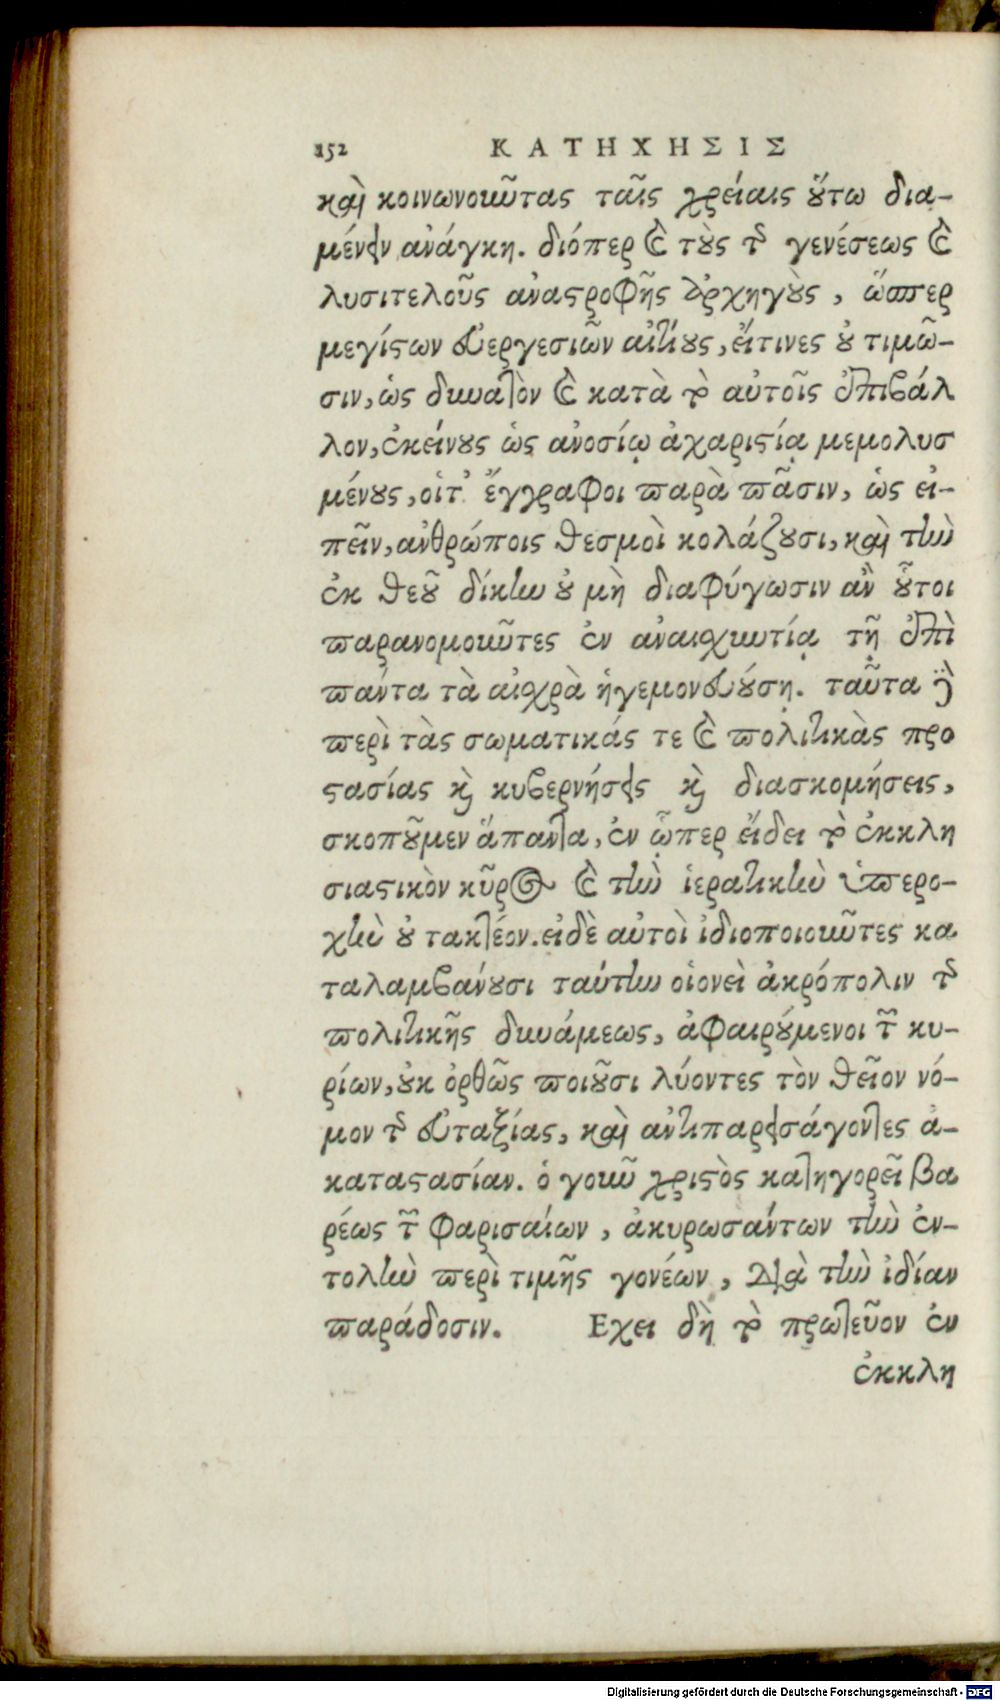 152 ΚΑΤΗΧΗΣΙΣ
καὶ κοινωνοῦντας ταῖς χρείαις οὕτω δια-
μένειν ἀνάγκη. διόπερ καὶ τοὺς τῆς γενέσεως καὶ
λυσιτελοῦς ἀναστροφῆς ἀρχηγοὺς, ὥσπερ
μεγίστων εὐεργεσιῶν αἰτίους, εἴτινες οὐ τιμῶ-
σιν, ὡς δυνατὸν καὶ κατὰ τὸ αὐτοῖς ἐπιβάλ
λον, ἐκείνους ὡς ἀνοσίῳ ἀχαριστίᾳ μεμολυσ
μένους, οἱ τ' ἔγγραφοι παρὰ πᾶσιν, ὡς εἰ-
πεῖν, ἀνθρώποις θεσμοὶ κολάζουσι, καὶ τὴν
ἐκ θεοῦ δίκην οὐ μὴ διαφύγωσιν ἂν οὗτοι
παρανομοῦντες ἐν ἀναισχυντίᾳ τῇ ἐπὶ
πάντα τὰ αἰσχρὰ ἡγεμονευούσῃ. ταῦτα δὲ
περὶ τὰς σωματικάς τε καὶ πολιτικὰς προ
στασίας καὶ κυβερνήσεις καὶ διασκομήσεις,
σκοποῦμεν ἅπαντα, ἐν ᾧπερ εἴδει τὸ ἐκκλη
σιαστικὸν κῦρος καὶ τὴν ἱερατικὴν ὑπερο-
χὴν οὐ τακτέον. εἰδὲ αὐτοὶ ἰδιοποιοῦντες κα
ταλαμβάνουσι ταύτην οἱονεὶ ἀκρόπολιν τῆς
πολιτικῆς δυνάμεως, ἀφαιρούμενοι τῶν κυ-
ρίων, οὐκ ὀρθῶς ποιοῦσι λύοντες τὸν θεῖον νό-
μον τῆς εὐταξίας, καὶ ἀντιπαρεισάγοντες ἀ-
καταστασίαν. ὁ γοῦν χριστὸς κατηγορεῖ βα
ρέως τῶν Φαρισαίων, ἀκυρωσάντων τὴν ἐν-
τολὴν περὶ τιμῆς γονέων, διὰ τὴν ἰδίαν
παράδοσιν. Εχει δὴ τὸ πρωτεῦον ἐν
ἐκκλη
Digitalisierung gefördert durch die Deutsche Forschungsgemeinschaft - DFG